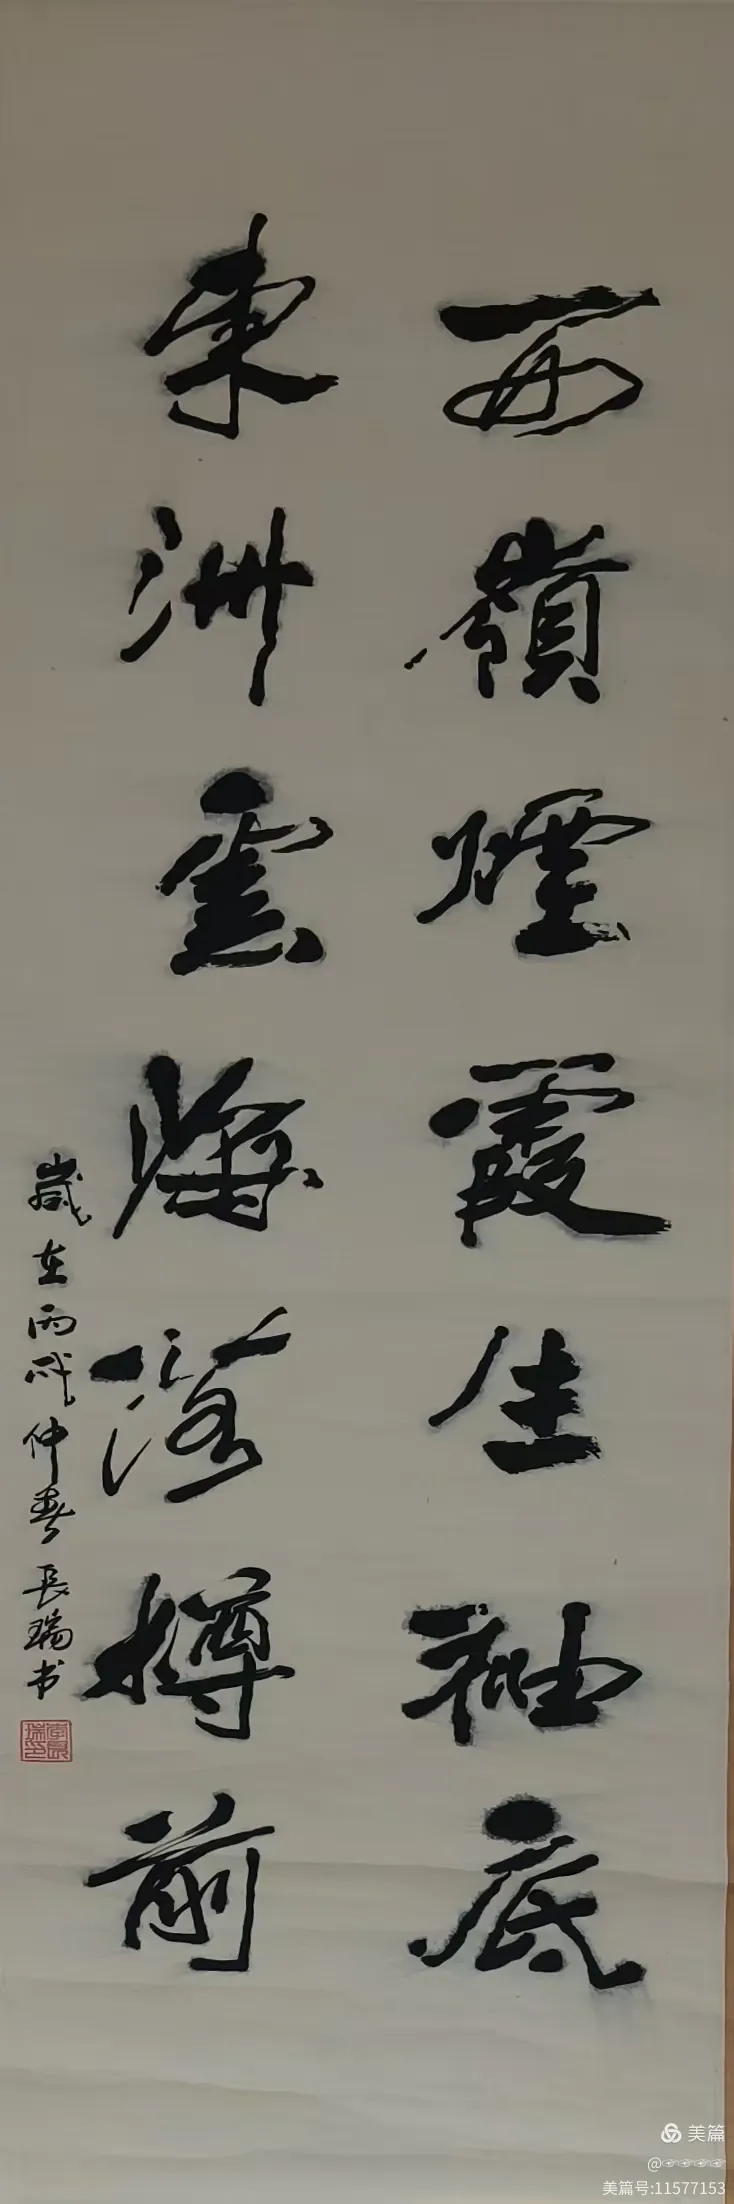 西嶺煙霞生袖底
東洲雲海落樽前
歲在丙戌仲春長瑞书
美篇
美篇号:11577153